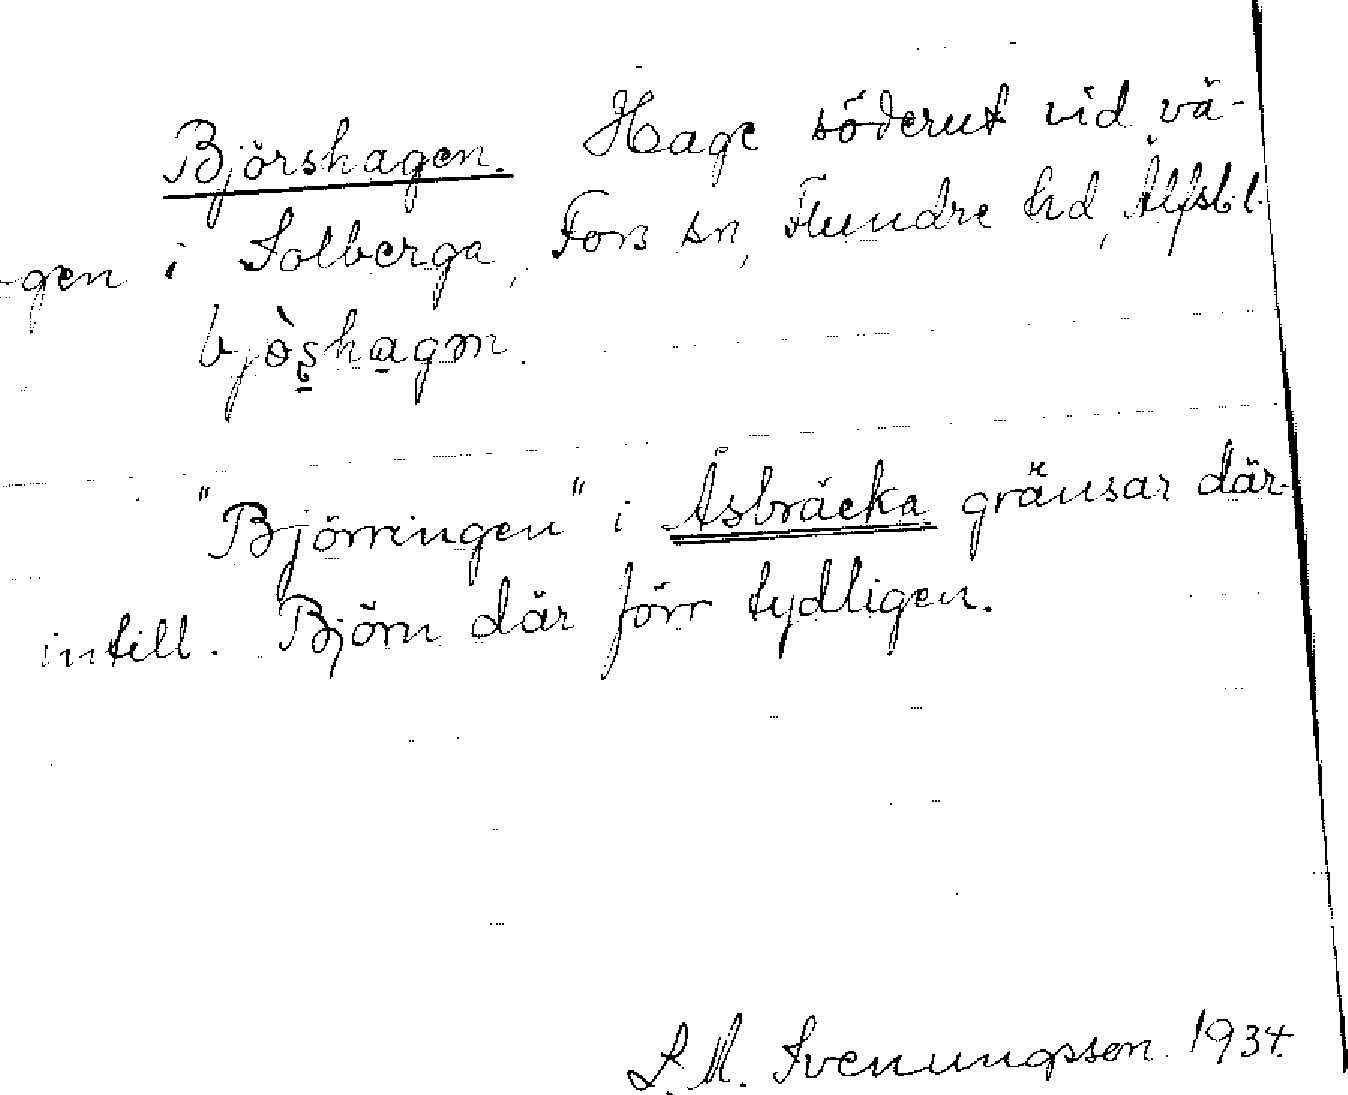 Björshagen. Hage söderut vid vä-
gen i Solberga, Fors sn, Flundre hd, Älfsb.l.
bjòʂhagən.
"Björringen" i Åsbräcka gränsar där-
intill. Björn där förr tydligen.
S. M. Svenungsson. 1934.